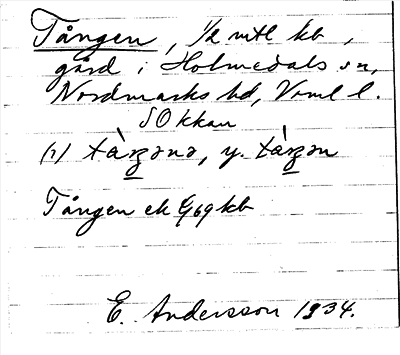 Tången, 1/2 mtl kb,
gård i Holmedals sn,
Nordmarks hd, Vrml l.
SO kkan
(1) tàŋənə, y. tàŋən
Tången ek G 69 kb
E. Andersson 1934.